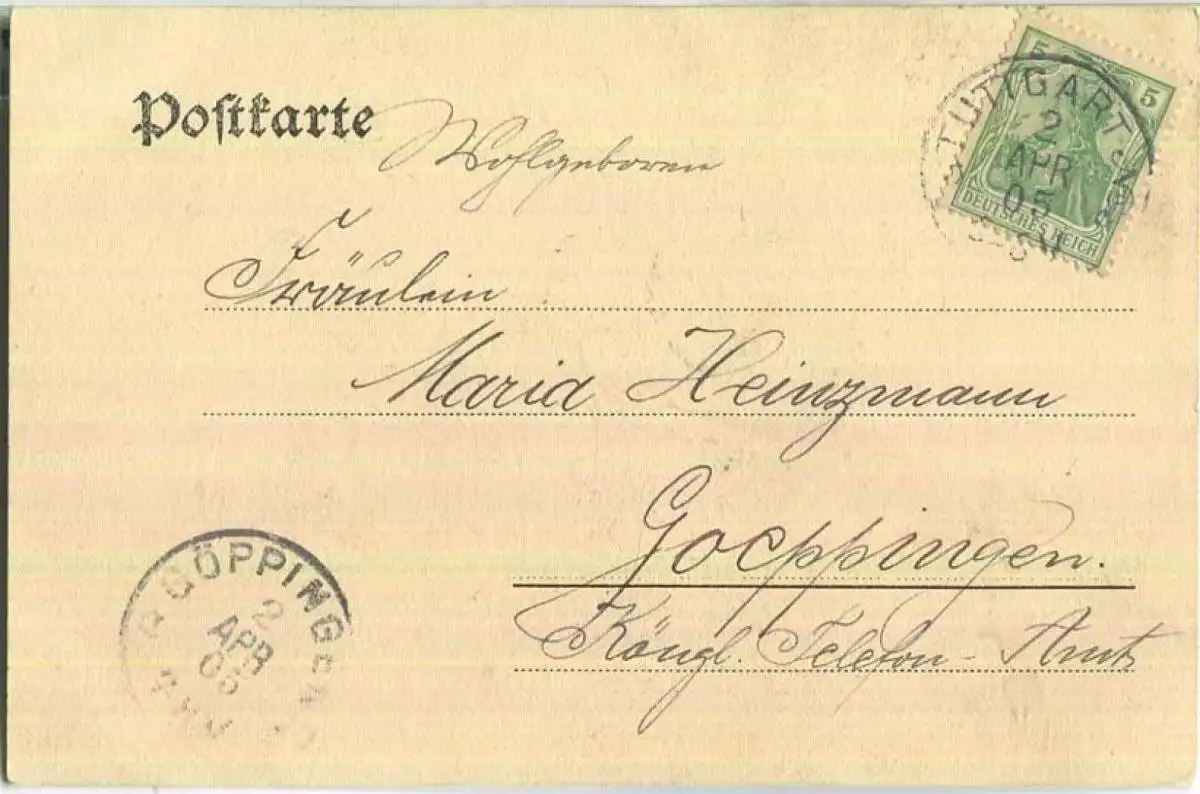 Postkarte
Wohlgeboren
5 5
DEUTSCHES REICH
STUTTGART
2
APR
05
Fräulein
Maria Heinzmann
Goeppingen.
Köngl. Telefon-Amt
GÖPPINGEN
2
APR
05